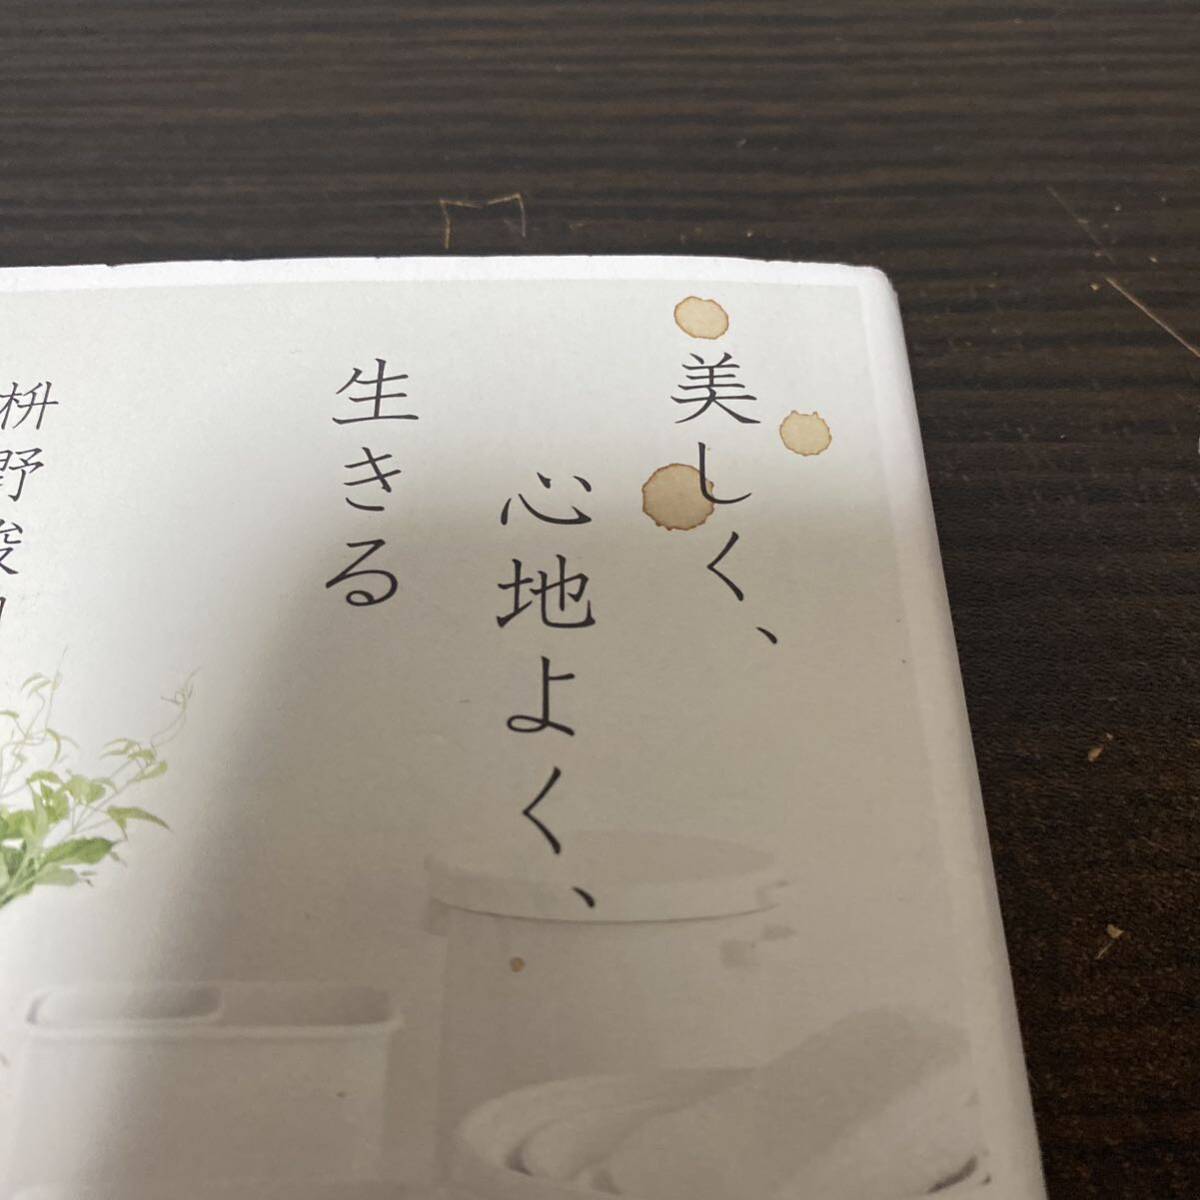 美しく、
心地よく、
生きる
枡野俊